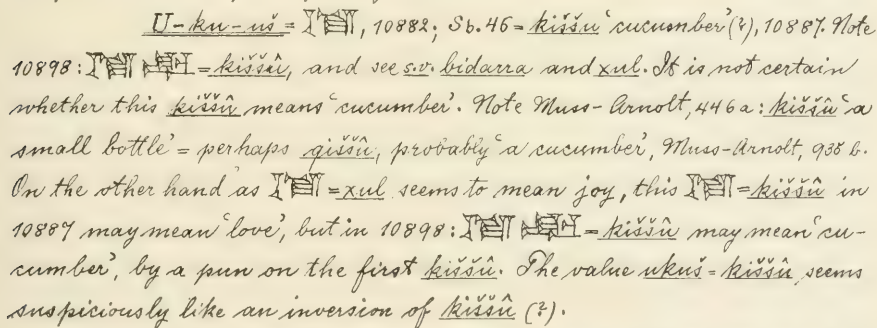 U-ku-uš = 𒄾, 10882; Sb. 46 = kiššu 'cucumber' (?), 10887. Note
10898: = kiššû, and see s.v. bidarra and xul. It is not certain
whether this kiššû means 'cucumber'. Note Muss-Arnolt, 446a: kiššû 'a
small bottle' = perhaps qiššû, probably 'a cucumber', Muss-Arnolt, 935 b.
On the other hand as = xul seems to mean joy, this = kiššû in
10887 may mean 'love', but in 10898: = kiššû may mean 'cu-
cumber', by a pun on the first kiššû. The value ukuš = kiššû seems
suspiciously like an inversion of kiššû (?).